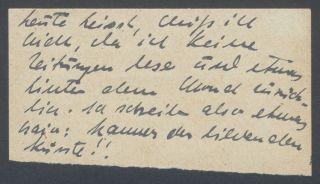 heute heisst, weiss ich
nicht, da ich keine
Zeitungen lese und etwas
hinter dem Mond zurück
bin. Ich schreibe also etwas
naiv: Kammer der bildenden
Künste!!